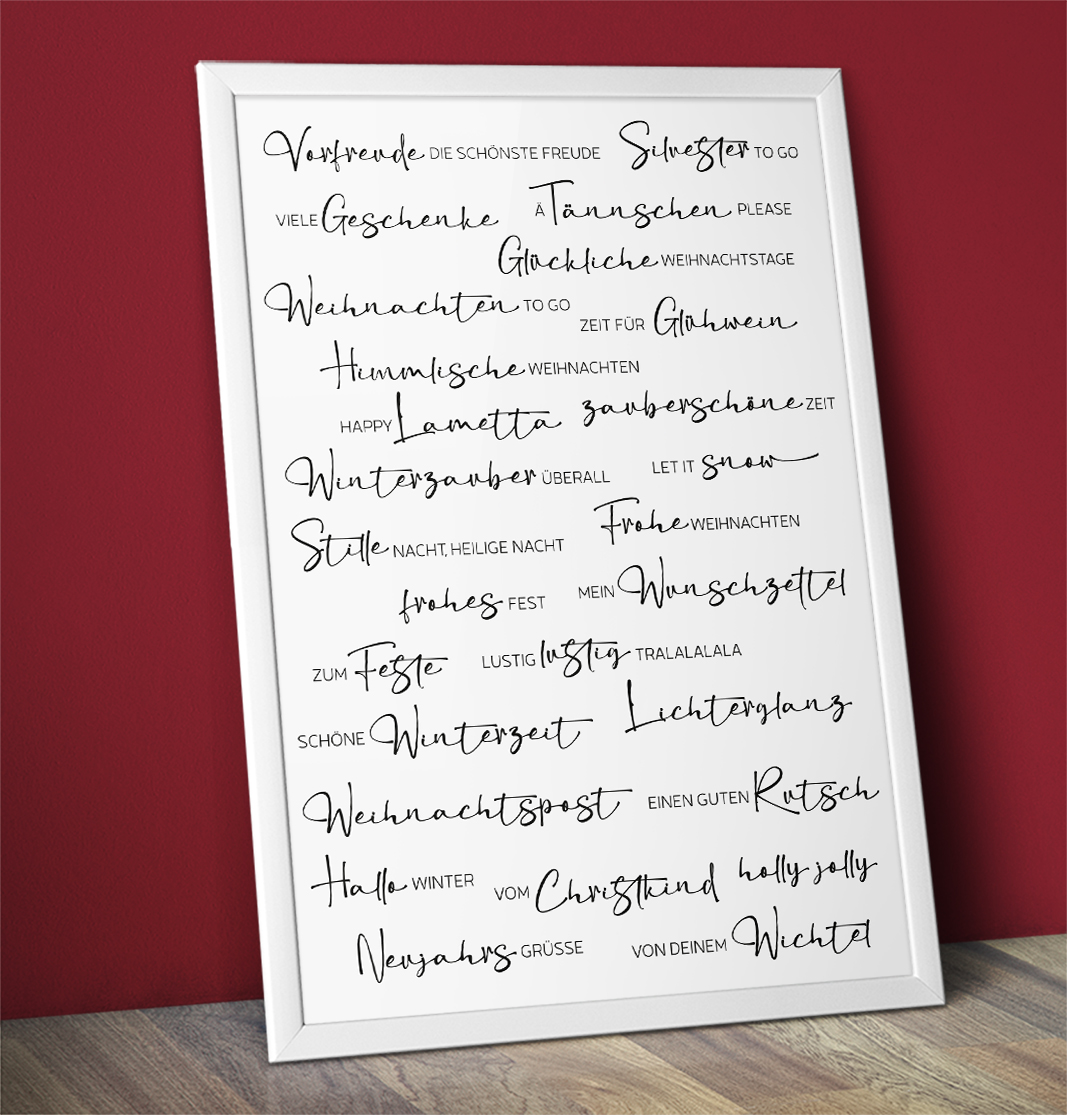 Vorfreude DIE SCHÖNSTE FREUDE
Silvester TO GO
VIELE Geschenke
Ä Tännschen PLEASE
Glückliche WEIHNACHTSTAGE
Weihnachten TO GO
ZEIT FÜR Glühwein
Himmlische WEIHNACHTEN
HAPPY Lametta
zauberschöne ZEIT
Winterzauber ÜBERALL
LET IT snow
Stille NACHT, HEILIGE NACHT
Frohe WEIHNACHTEN
frohes FEST
MEIN Wunschzettel
ZUM Feste
LUSTIG lustig TRALALALALA
SCHÖNE Winterzeit
Lichterglanz
Weihnachtspost
EINEN GUTEN Rutsch
Hallo WINTER
VOM Christkind
holly jolly
Neujahrs GRÜSSE
VON DEINEM Wichtel